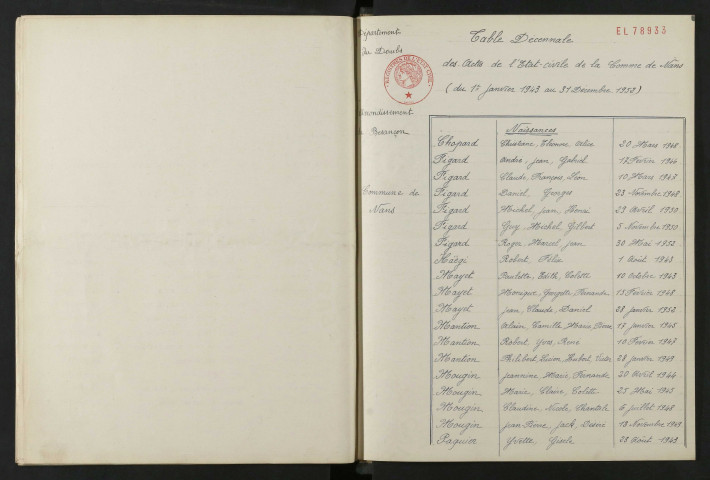 Département
du Doubs
Arrondissement
de Besançon
Commune de
Nans
EL 78933
Table Décennale
des Actes de l'Etat-civile de la Commune de Nans
(du 1er janvier 1943 au 31 Décembre 1952)
Naissances
Chopard Christiane, Etienne, Alice 20 Mars 1948
Pigard André, jean, Gabriel 17 Février 1944
Pigard Claude, François, Léon 10 Mars 1947
Pigard Daniel Georges 23 Novembre 1948
Pigard Michel, jean, Henri 29 Avril 1950
Pigard Guy, Michel, Gilbert 5 Novembre 1950
Pigard Roger Marcel jean 30 Mai 1952
Robert, Félix 1 Août 1943
Mayet Paulette, Edith, Colette 10 Octobre 1943
Mayet Monique, Georgette, Fernande 13 Février 1948
Mayet jean, Claude, Daniel 28 janvier 1952
Mantion Alain, Camille, Marie, Pierre 17 janvier 1945
Mantion Robert, Yves, René 10 Février 1947
Mantion Philibert, Lucien, Hubert 28 janvier 1949
Mougin jeannine, Marie, Fernande 20 Avril 1944
Mougin Marie, Claire, Colette 25 Mai 1945
Mougin Claudine, Nicole, Chantal 6 juillet 1948
Mougin jean-Pierre, jack, Denis 18 Novembre 1949
Paquier Yvette, Gisèle 28 Août 1949